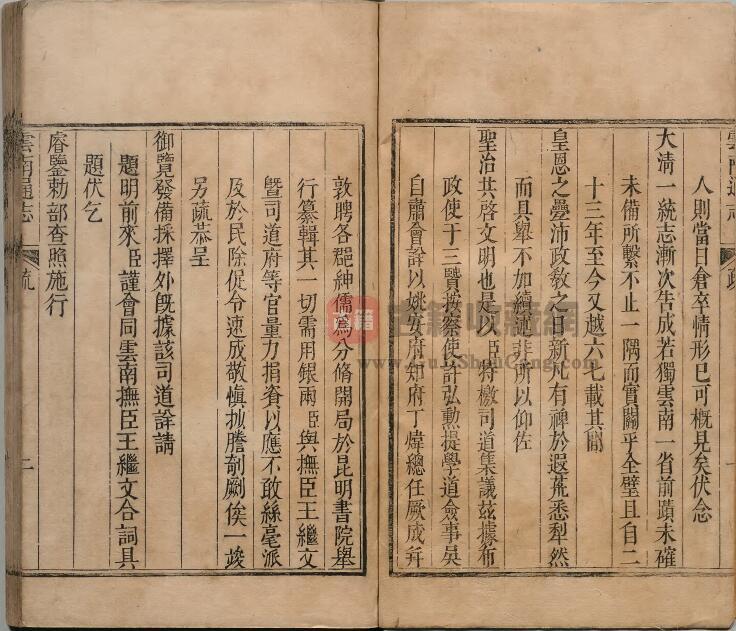 人則當日倉卒情形已可概見矣伏念
大清一統志漸次告成若獨雲南一省前蹟未確
未備所繫不止一隅而實關乎全璧且自二
十三年至今又越六七載其間
皇恩之疊沛政敎之日新凡有禆於遐荒悉犁然
而具舉不加纘述非所以仰佐
聖治共啓文明也是以臣特檄司道集議玆據布
政使于三賢按察使許弘勲提學道僉事吳
自肅會詳以姚安府知府丁煒總任厥成并
敦聘各郡紳儒爲分脩開局於昆明書院舉
行纂輯其一切需用銀兩臣與撫臣王繼文
曁司道府等官量力捐資以應不敢絲毫派
及於民除促令速成敬愼抄謄剞劂俟一竣
另疏恭呈
御覽發備採擇外旣據該司道詳請
題明前來臣謹會同雲南撫臣王繼文合詞具
題伏乞
睿鑒勅部查照施行
雲南通志
疏
二
古籍
古籍收藏網
www.GuJiShouCang.com